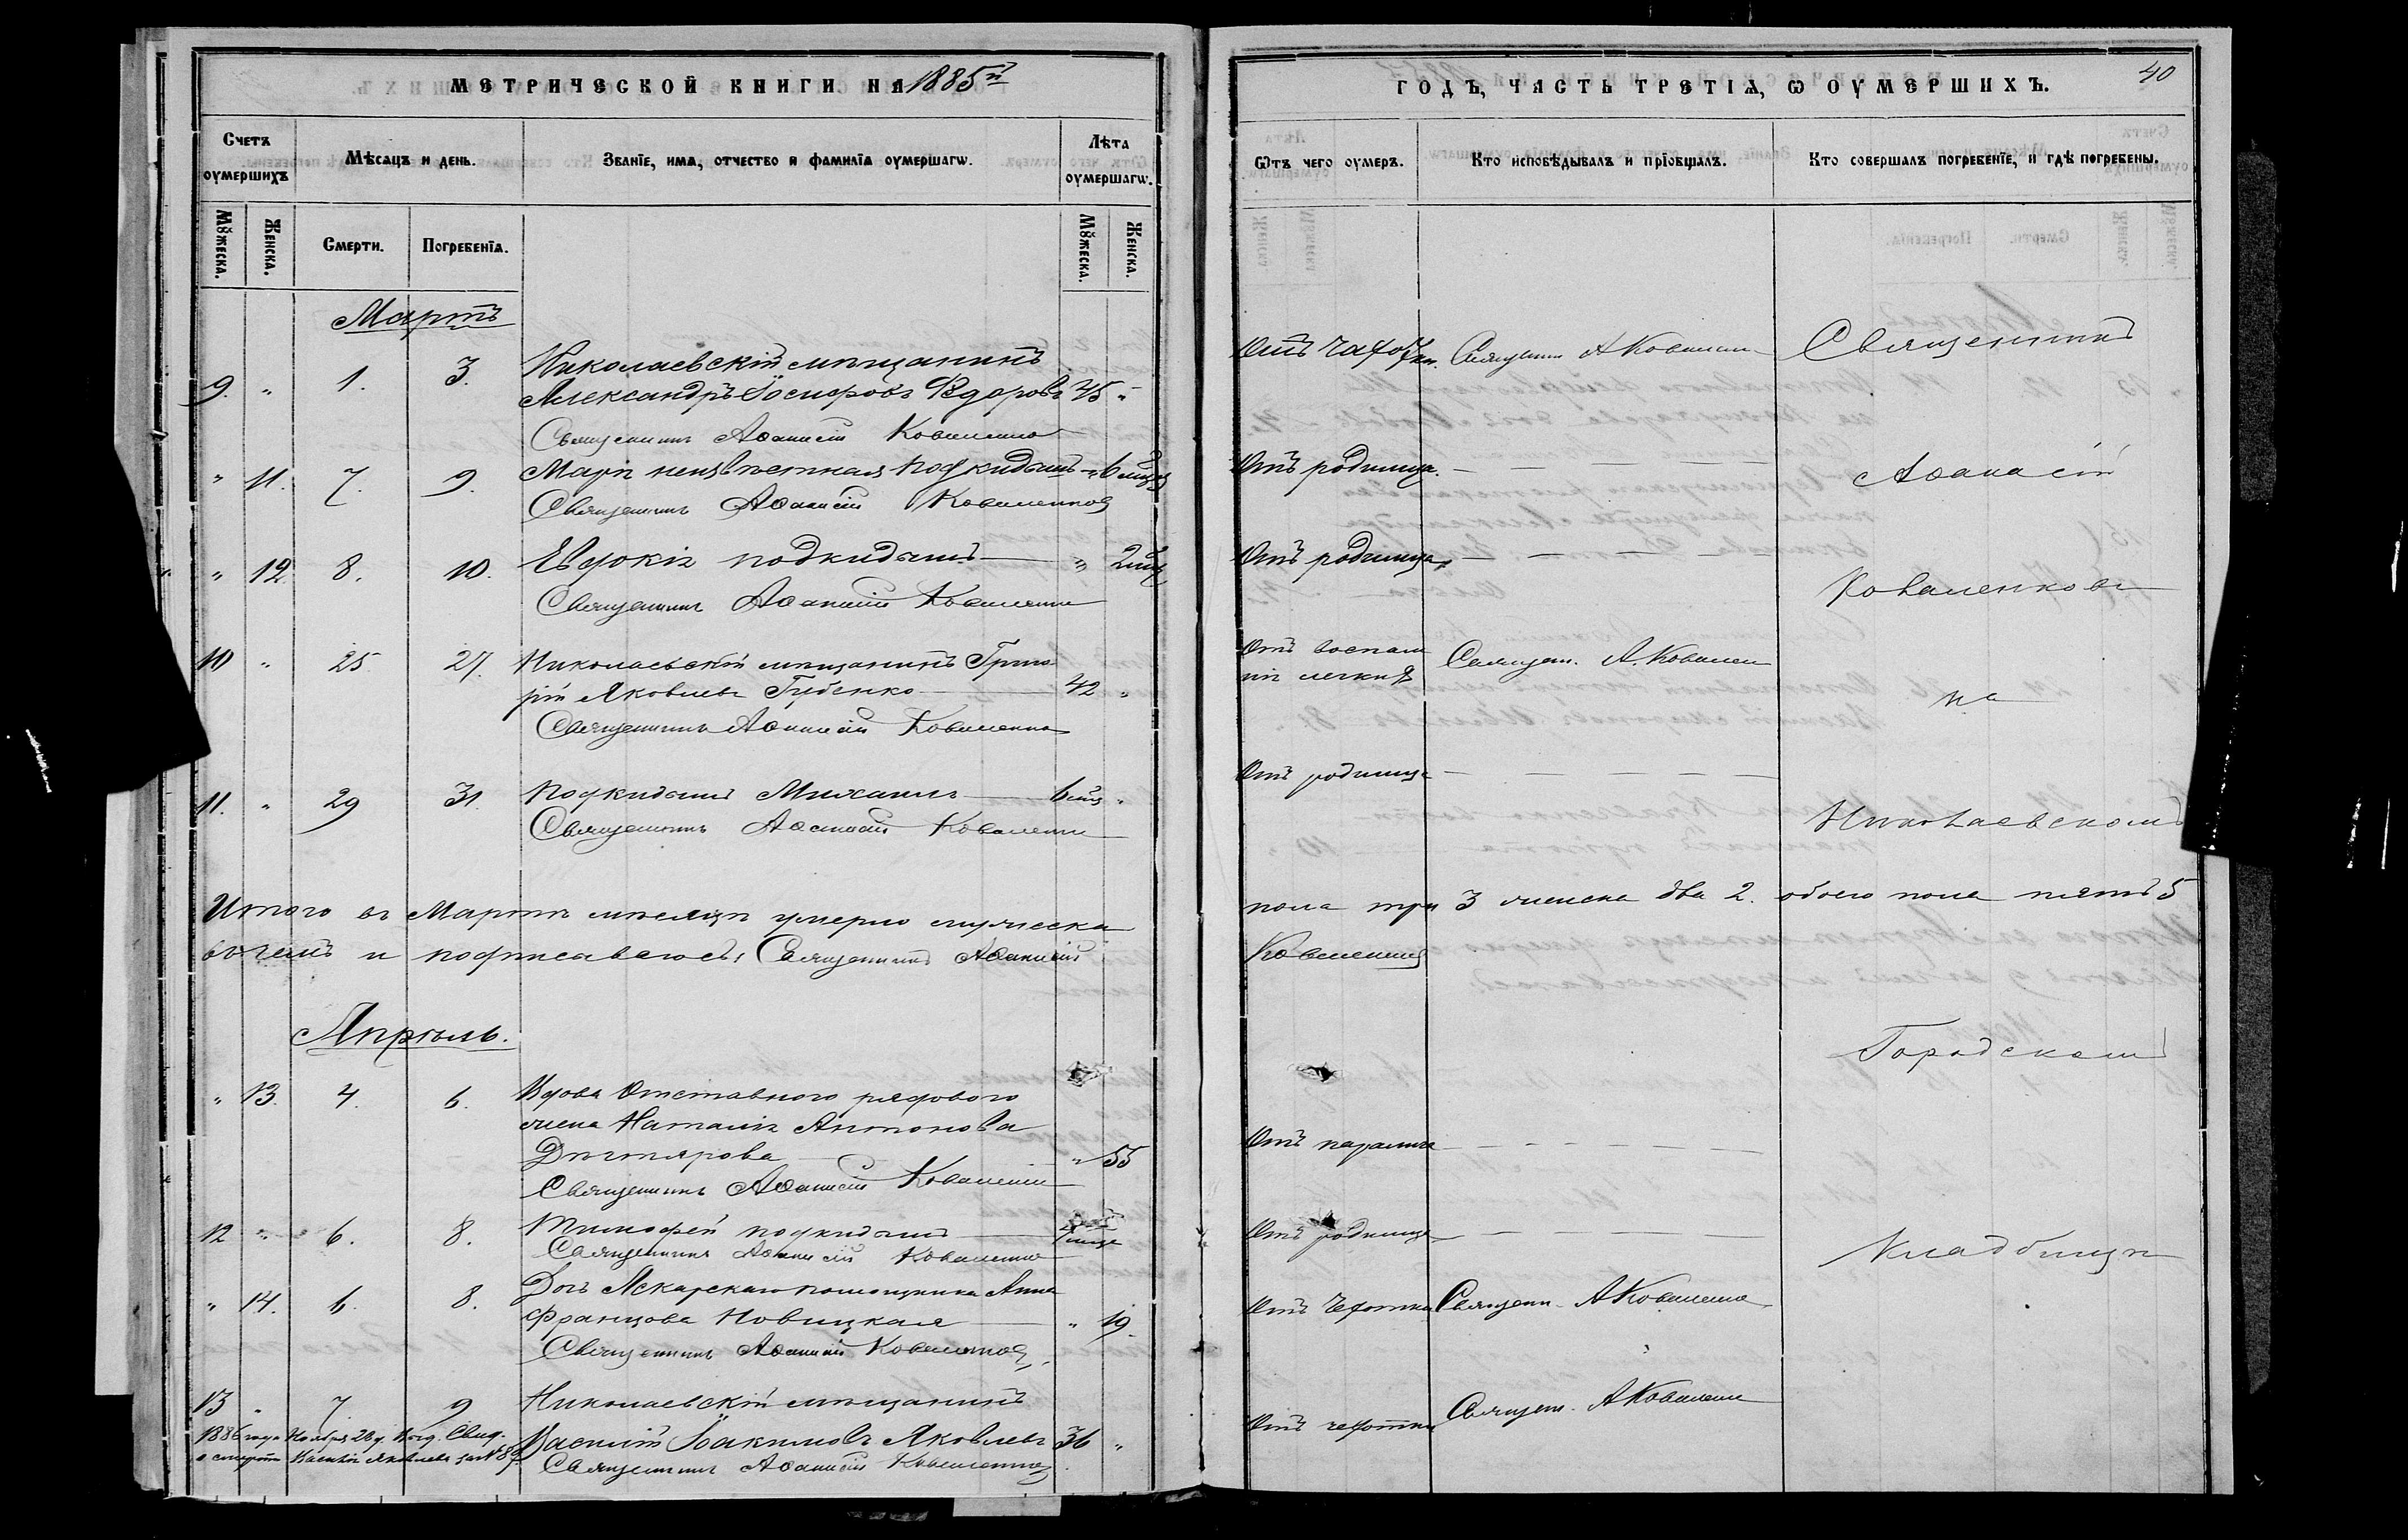 МЕТРИЧЕСКОЙ КНИГИ НА 1885й
Счетъ оумершихъ
Мѣсяцъ и день.
Званїе, имя, отчество и фамилїя оумершагѡ.
Лѣта оумершагѡ.
Мꙋжеска.
Женска.
Смерти.
Погребенїя.
Мꙋжеска.
Женска.
Мартъ
9. " 1. 3. Николаевскій мѣщанинъ
Александръ Іосифовъ Ѳедоровъ 45 "
Священникъ Аѳанасій Коваленко
" 11. 7. 9. неизвѣстная подкидышъ " 6 мѣс
Священникъ Аѳанасій Коваленковъ
" 12 8. 10. Евдокія подкидышъ " 2 мѣс
Священникъ Аѳанасій Коваленко
10 " 25 27. Николаевскій мѣщанинъ Григо
рій Яковлевъ Губенко 42 "
Священникъ Аѳанасій Коваленко
11. " 29 31. Подкидышъ Михаилъ 6 мѣс "
Священникъ Аѳанасій Коваленко
Итого въ Мартѣ мѣсяцѣ умерло мужеска
въ чемъ и подписываюсь: Священникъ Аѳанасій
Апрѣль.
" 13. 4. 6. Вдова Отставного рядового
жена Наталія Антонова
Дегтярова " 55
Священникъ Аѳанасій Коваленко
12 " 6. 8. Тимофей подкидышъ
Священникъ Аѳанасій Коваленко
" 14. 6. 8. Дочь Лекарскаго помощника Анна
Францова Новицкая " 19.
Священникъ Аѳанасій Коваленковъ
13 " 7 9 Николаевскій мѣщанинъ
Василій Іоакимовъ Яковлевъ 36 "
Священникъ Аѳанасій Коваленко
1886 года Ноября 28 д. Выд. Свид.
о смерти Василія Яковлева за №
ГОДЪ, ЧАСТЬ ТРЕТІѦ, Ѡ ОУМЕРШИХЪ.
40
Ѿтъ чего оумеръ.
Кто исповѣдывалъ и прїобщалъ.
Кто совершалъ погребенїе, и гдѣ погребены.
Отъ чахотки. Священ А Ковален
Священникъ
Отъ родимца.
Аѳанасій
Отъ родимца
Коваленковъ
Отъ воспале
нія легкихъ Священ. А. Ковален
на
Отъ родимца
Николаевскомъ
пола три 3 женска два 2. обоего пола пять 5
Коваленковъ
Городскомъ
Отъ паралича
Отъ родимца
Кладбищѣ
Отъ чахотки Священ. А Коваленко
Отъ чахотки Священ. А Коваленко